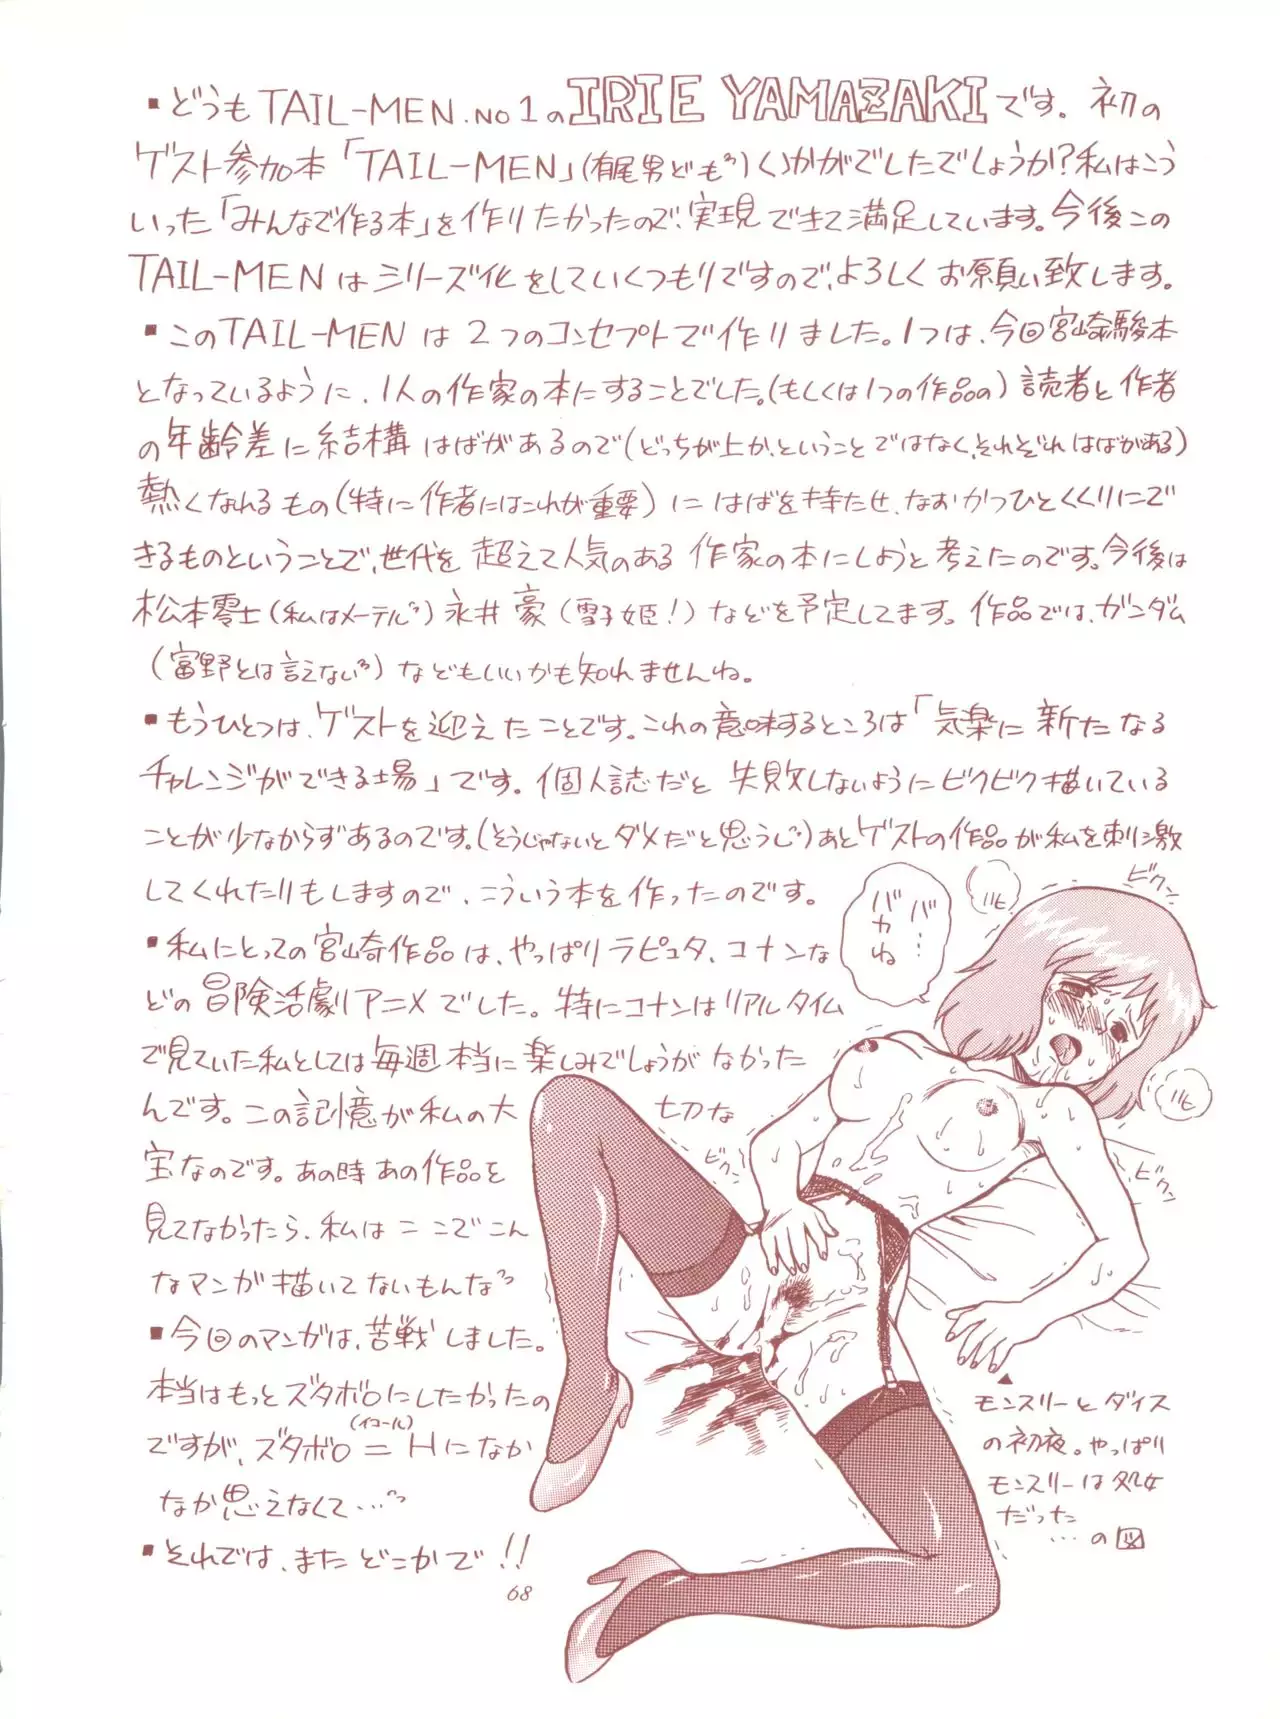 ▪どうもTAIL-MEN.NO1のIRIE YAMAZAKIです。初の
ゲスト参加本「TAIL-MEN」(有尾男ども)いかがでしたでしょうか?私はこう
いった「みんなで作る本」を作りたかったので、実現できて満足しています。今後この
TAIL-MENはシリーズ化をしていくつもりですので、よろしくお願い致します。
▪このTAIL-MENは2つのコンセプトで作りました。1つは、今回宮崎駿本
となっているように、1人の作家の本にすることでした。(もしくは1つの作品の)読者と作者
の年齢差に結構はばがあるので(どっちが上か、ということではなく、それぞれはばがある)
熱くなれるもの(特に作者にはこれが重要)にはばを持たせ、なおかつひとくくりにで
きるものということで、世代を超えて人気のある作家の本にしようと考えたのです。今後は
松本零士(私はメーテル)永井豪(雪子姫!)などを予定してます。作品では、ガンダム
(富野とは言えない)などもいいかも知れませんね。
▪もうひとつは、ゲストを迎えたことです。これの意味するところは「気楽に新たなる
チャレンジができる場」です。個人誌だと失敗しないようにビクビク描いている
ことが少なからずあるのです。(そうじゃないとダメだと思うし)あとゲストの作品が私を刺激
してくれたりもしますので、こういう本を作ったのです。
▪私にとっての宮崎作品は、やっぱりラピュタ、コナンな
どの冒険活劇アニメでした。特にコナンはリアルタイム
で見ていた私としては毎週本当に楽しみでしょうがなかった
んです。この記憶が私の大切な
宝なのです。あの時あの作品を
見てなかったら、私はここでこん
なマンガ描いてないもんな
▪今回のマンガは、苦戦しました。
本当はもっとズタボロにしたかったの
ですが、ズタボロ=(イコール)Hになか
なか思えなくて…
▪それでは、またどこかで!!
バ…
バカね
ハヒ
ビクン
ハヒ
ビクン
ビクン
モンスリーとダイス
の初夜。やっぱり
モンスリーは処女
だった
…の図
68